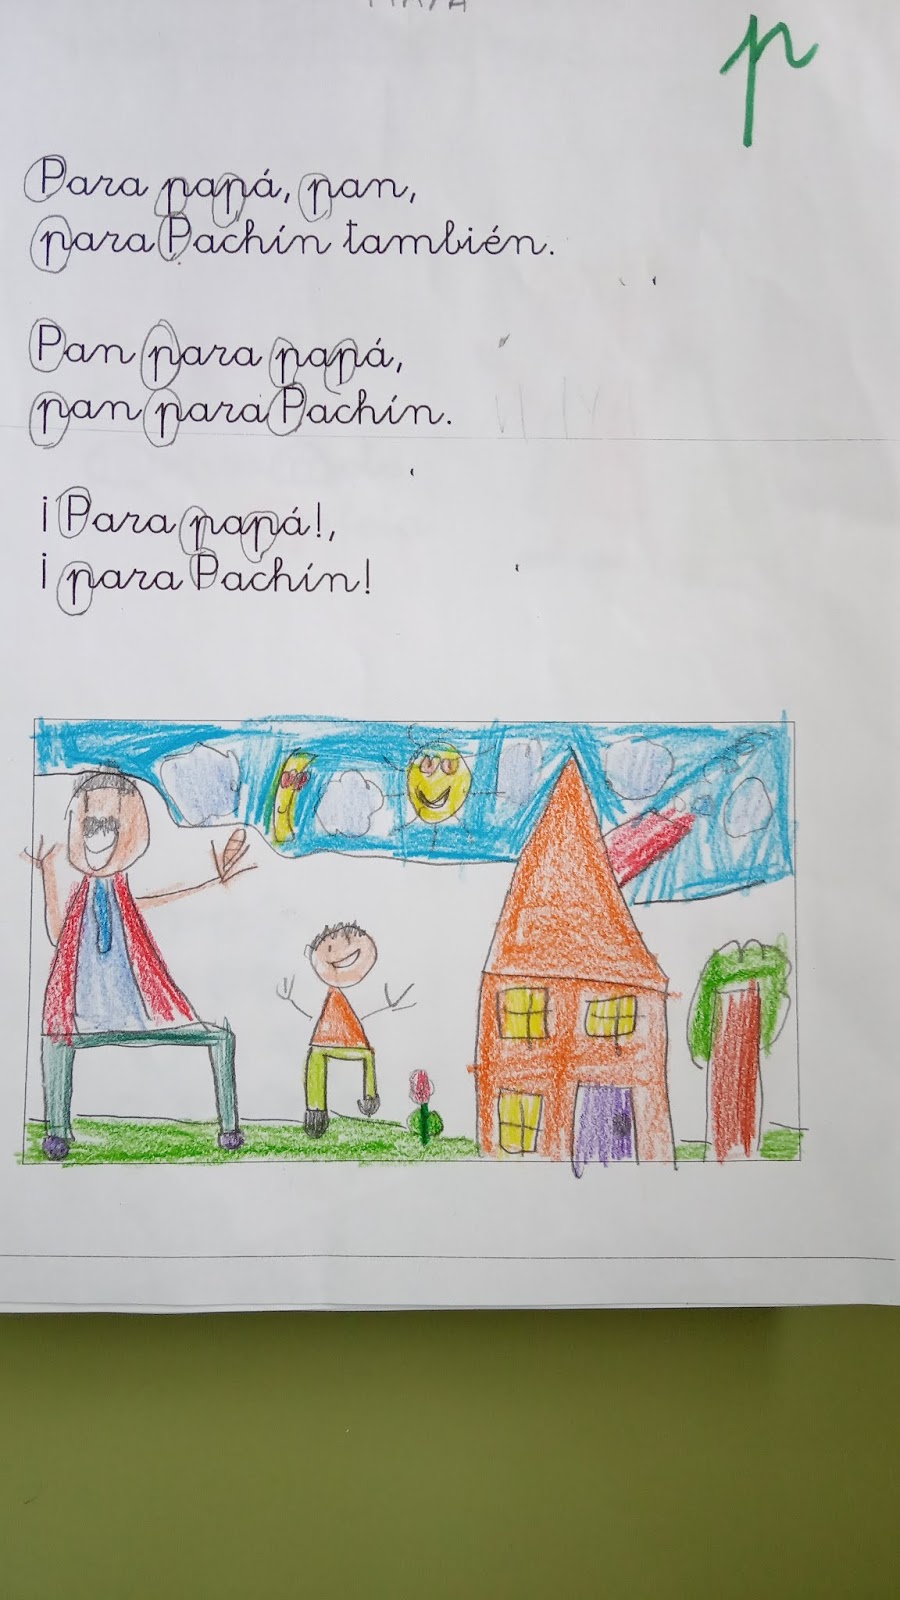 p
Para papá, pan,
para Pachín también.
Pan para papá,
pan para Pachín.
¡Para papá!,
¡para Pachín!